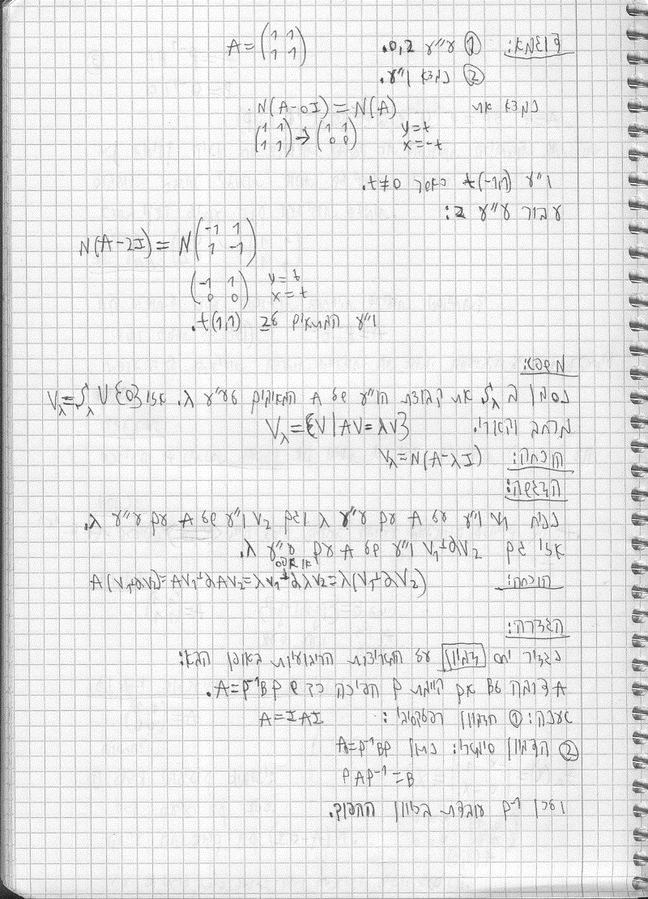 דוגמא: ① ע״ע 0,2. A = (1 1 / 1 1)
② נמצא ו״ע.
נמצא את N(A-0I) = N(A)
(1 1 / 1 1) → (1 1 / 0 0) y=t x=-t
ו״ע t(-1,1) כאשר t≠0.
עבור ע״ע 2:
N(A-2I) = N(-1 1 / 1 -1)
(-1 1 / 0 0) y=t x=t
ו״ע המתאים ל2 t(1,1).
משפט:
נסמן ב את קבוצת הו״ע של A המתאימים לע״ע λ. אזי V_λ = ∪ {0}
מרחב וקטורי. V_λ = {V | AV = λV}
הוכחה: V_λ = N(A-λI)
הדגשה:
נניח V₁ ו״ע של A עם ע״ע λ וגם V₂ ו״ע של A עם ע״ע λ.
אזי גם V₁+αV₂ ו״ע של A עם ע״ע λ.
או אפס
הוכחה: A(V₁+αV₂) = AV₁+αAV₂ = λV₁+αλV₂ = λ(V₁+αV₂)
הגדרה:
נגדיר יחס דמיון על המטריצות הריבועיות באופן הבא:
A דומה לB אם קיימת P הפיכה כך ש A=P⁻¹BP.
טענה: ① הדמיון רפלקסיבי: A=IAI
② הדמיון סימטרי: נתון A=P⁻¹BP
PAP⁻¹=B
ולכן P⁻¹ עובדת בכיוון ההפוך.